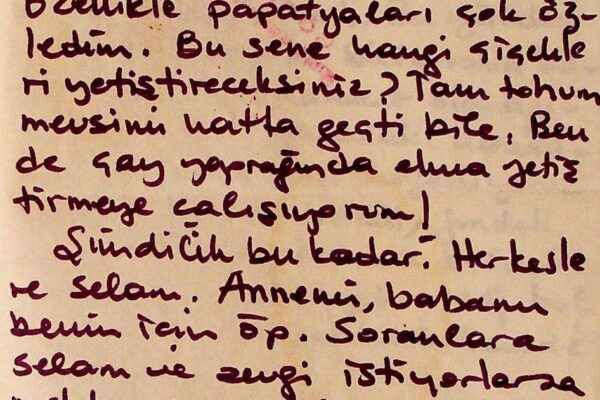 özellikle papatyaları çok öz-
ledim. Bu sene hangi çiçekle
ri yetiştireceksiniz? Tam tohum
mevsimi hatta geçti bile, Ben
de çay yaprağında elma yetiş
tirmeye çalışıyorum!
Şimdicik bu kadar. Herkesle
re selam. Annemi, babamı
benim için öp. Soranlara
selam ve sevgi istiyorlarsa